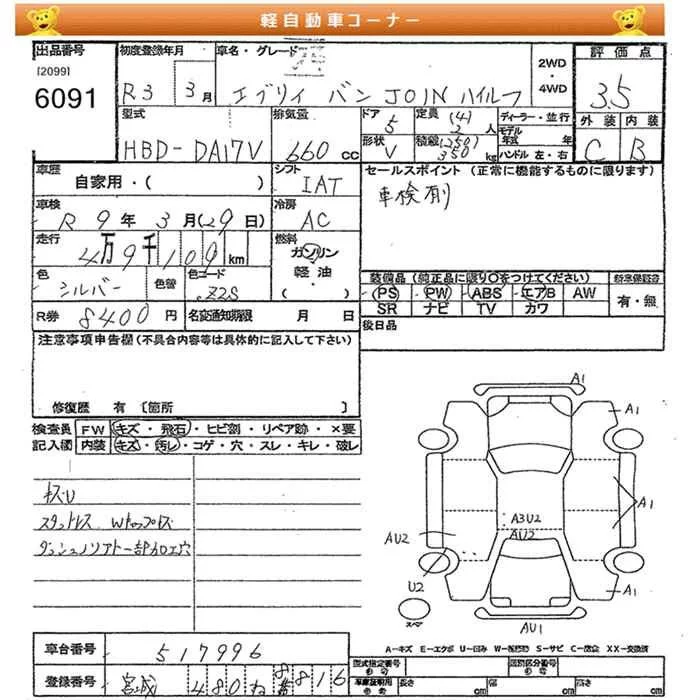 軽自動車コーナー
出品番号
[2099]
6091
初度登録年月
R3 3月
車名・グレード
エブリイ バン JOIN ハイルーフ
2WD
・
4WD
評価点
3.5
外装 内装
C B
型式
HBD-DA17V
排気量
660 cc
ドア
5
形状
V
定員 (4)
2 人
積載 (250)
350 kg
ディーラー・並行
モデル年式 年
ハンドル 左・右
車歴
自家用・( )
シフト
IAT
車検
R 9年 3月(29日)
冷房
AC
走行
4万9千100km
燃料
ガソリン
軽油
・
( )
色
シルバー
色替
色コード
Z2S
R券 8400 円
名変通知期限 月 日
セールスポイント (正常に機能するものに限ります)
車検有
装備品 (純正品に限り○をつけてください)
PS PW ABS エアB AW
SR ナビ TV カワ
新車保証書
有・無
後日品
注意事項申告欄 (不具合内容等は具体的に記入して下さい)
修復歴 有 [箇所 ]
検査員記入欄
FW キズ・飛石・ヒビ割・リペア跡・×要
内装 キズ・汚レ・コゲ・穴・スレ・キレ・破レ
キズU
スタットレス Wホップレス
ダッシュ/リアトー部加工穴
A1
A1
A1
A3U2
AU2
AU2
U2
A1
AU1
スペア
A-キズ E-エクボ U-凹み W-板跡 S-サビ C-腐食 XX-交換済
車台番号
517996
登録番号
宮城 480 ね 8816
型式指定番号
類別区分番号
長さ cm 幅 cm 高 cm